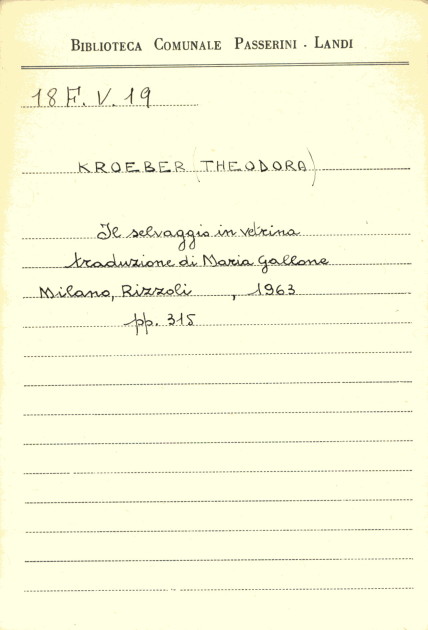 BIBLIOTECA COMUNALE PASSERINI - LANDI
18 F. V. 19
KROEBER (THEODORA)
Il selvaggio in vetrina
traduzione di Maria Gallone
Milano, Rizzoli , 1963
pp. 315